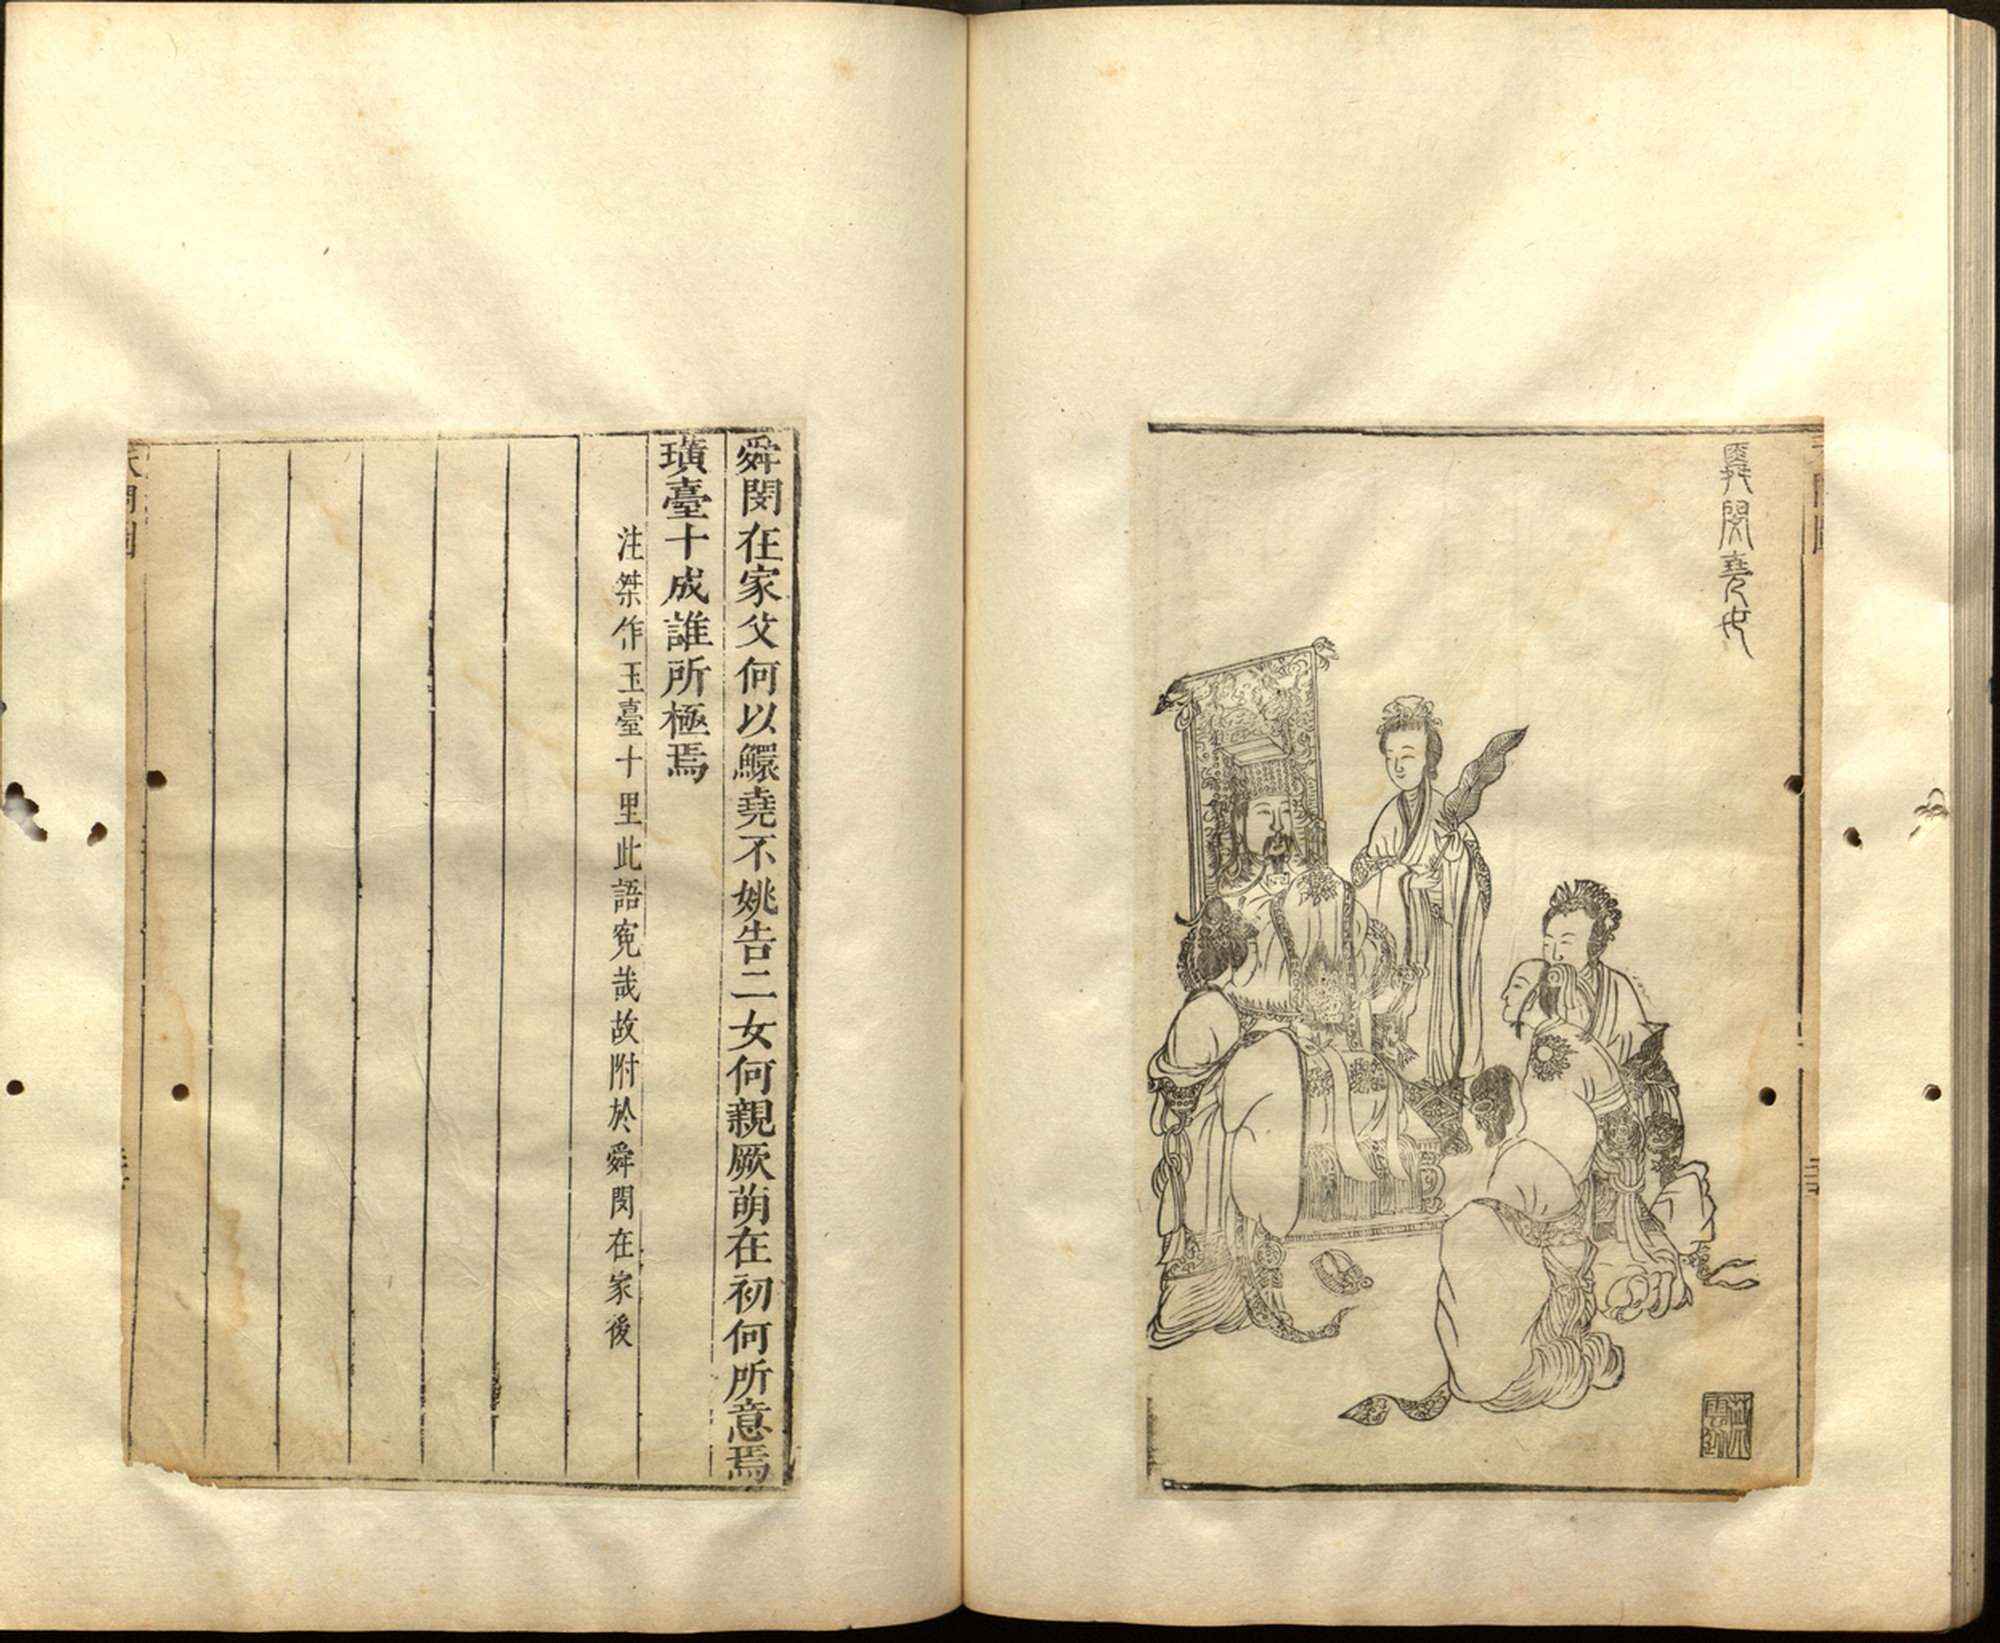 舜閔堯女
舜閔在家父何以鱞堯不姚告二女何親厥萌在初何所意焉
璜臺十成誰所極焉
注桀作玉臺十里此語寃哉故附於舜閔在家後
天問圖